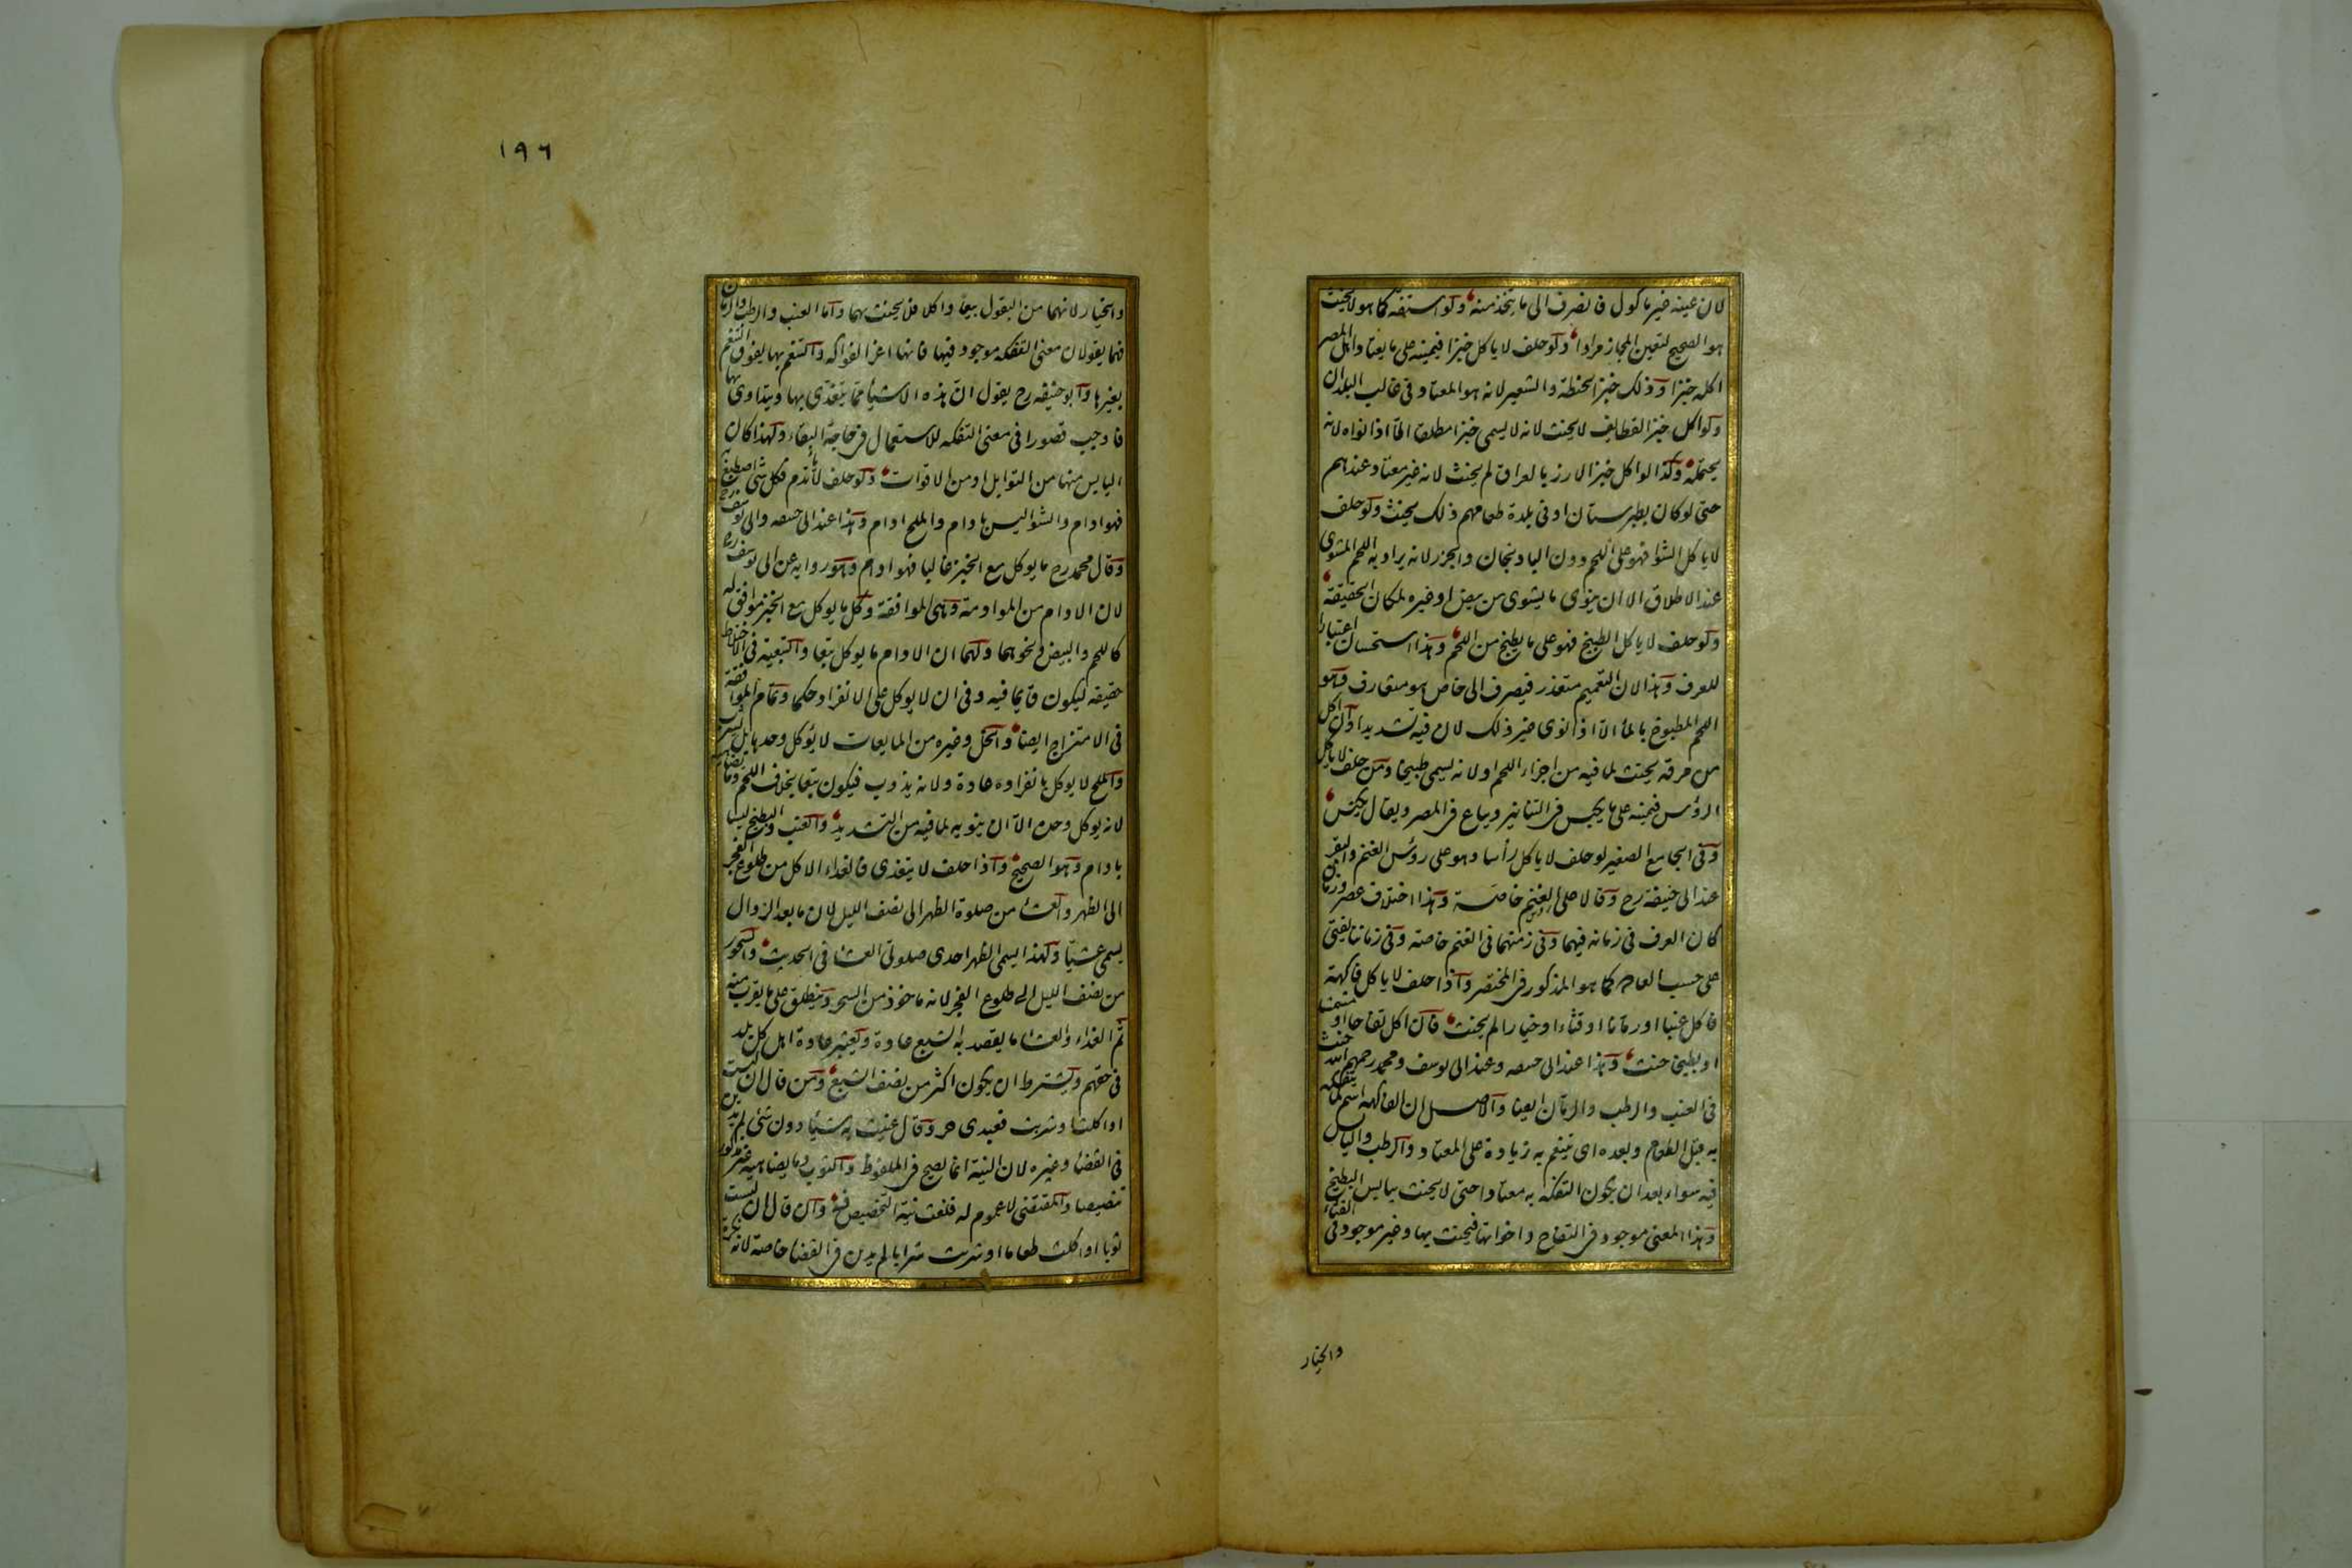 لان عينه غير ماكول فانصرف الى ما يتخذ منه ولو استفه كما هو لا يحنث
هو الصحيح لتعين المجاز مرادا ولو حلف لا ياكل خبزا فيمينه على ما يعتاد اهل المصر
اكله خبزا وذلك خبز الحنطة والشعير لانه هو المعتاد فى غالب البلدان
ولو اكل خبز القطايف لا يحنث لانه لا يسمى خبزا مطلقا الا اذا نواه لانه
يحتمله وكذا لو اكل خبز الارز بالعراق لم يحنث لانه غير معتاد عندهم
حتى لو كان بطبرستان او فى بلدة طعامهم ذلك يحنث ولو حلف
لا ياكل الشوا فهو على اللحم دون الباذنجان والجزر لانه يراد به اللحم المشوى
عند الاطلاق الا ان ينوى ما يشوى من بيض او غيره لمكان الحقيقة
ولو حلف لا ياكل الطبيخ فهو على ما يطبخ من اللحم وهذا استحسان اعتبارا
للعرف وهذا لان التعميم متعذر فيصرف الى خاص هو متعارف وهو
اللحم المطبوخ بالماء الا اذا نوى غير ذلك لان فيه تشديدا وان اكل
من مرقه يحنث لما فيه من اجزاء اللحم او لانه يسمى طبيخا ومن حلف لا ياكل
الرؤس فيمينه على ما يكبس فى التنانير ويباع فى المصر ويقال يكنس
وفى الجامع الصغير لو حلف لا ياكل رأسا وهو على رؤس الغنم والبقر
عند ابى حنيفة رح وقالا على الغنم خاصة وهذا اختلاف عصر وزمان
كان العرف فى زمانه فيهما وفى زمنهما فى الغنم خاصة وفى زماننا يفتى
على حسب العادة كما هو المذكور فى المختصر واذا حلف لا ياكل فاكهة
فاكل عنبا او رمانا او قثاء او خيارا لم يحنث فان اكل تفاحا او مشمشا
او بطيخا حنث وهذا عند ابى حنيفة وعند ابى يوسف ومحمد رحمهم الله حنث
فى العنب والرطب والرمان ايضا والاصل ان الفاكهة اسم لما يتفكه
به قبل الطعام وبعده اى يتنعم به زيادة على المعتاد والرطب واليابس
فيه سواء بعد ان يكون التفكه به معتادا حتى لا يحنث بيابس البطيخ
وهذا المعنى موجود فى التفاح واخواتها فيحنث بها وغير موجود فى القثاء
والخيار
١٩٦
والخيار لانهما من البقول بيعا واكلا فلا يحنث بهما واما العنب والرطب والرمان
فهما يقولان معنى التفكه موجود فيها فانها اعز الفواكه والتنعم بها يفوق التنعم
بغيرها وابو حنيفه رح يقول ان هذه الاشياء مما يتغذى بها ويتداوى بها
فاوجب قصورا فى معنى التفكه للاستعمال فى حاجة البقاء ولهذا كان
اليابس منها من التوابل او من الاقوات ولو حلف لا يأتدم فكل شئ اصطبغ به
فهو ادام والشوا ليس بادام والملح ادام وهذا عند ابى حنيفة وابى يوسف رح
وقال محمد رح ما يوكل مع الخبز غالبا فهو ادام وهو رواية عن ابى يوسف رح
لان الادام من الموادمة وهى الموافقة وكل ما يوكل مع الخبز موافق له
كاللحم والبيض ونحوهما ولهما ان الادام ما يوكل تبعا والتبعية فى الاختلاط
حقيقة ليكون قايما فيه وفى ان لا يوكل على الانفراد حكما وتمام الموافقة
فى الامتزاج ايضا والخل وغيره من المايعات لا يؤكل وحدها بل يشرب
والملح لا يوكل بانفراده عادة ولانه يذوب فيكون تبعا بخلاف اللحم وما يضاهيه
لانه يوكل وحده الا ان ينويه لما فيه من التشديد والعنب والبطيخ ليسا
بادام وهو الصحيح واذا حلف لا يتغدى فالغداء الاكل من طلوع الفجر
الى الظهر والعشاء من صلوة الظهر الى نصف الليل لان ما بعد الزوال
يسمى عشيا ولهذا يسمى الظهر احدى صلوتى العشا فى الحديث والسحور
من نصف الليل الى طلوع الفجر لانه ماخوذ من السحر وينطلق على ما يقرب منه
ثم الغداء والعشا ما يقصد به الشبع عادة ويعتبر عادة اهل كل بلد
فى حقهم ويشترط ان يكون اكثر من نصف الشبع ومن قال ان لبست
او اكلت او شربت فعبدى حر وقال عنيت به شيئا دون شئ لم يدين
فى القضا وغيره لان النية انما تصح فى الملفوظ والثوب وما يضاهيه غير مذكور
تنصيصا والمقتضى لا عموم له فلغت نية التخصيص فيه وان قال ان لبست
ثوبا او اكلت طعاما او شربت شرابا لم يدين فى القضا خاصة لانه نكرة